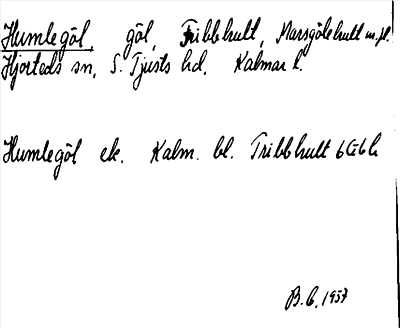 Humlegöl, göl, Tribbhult, Marsgölehult m.fl.
Hjorteds sn, S. Tjusts hd. Kalmar l.
Humlegöl ek. Kalm. bl. Tribbhult
B.C. 1957